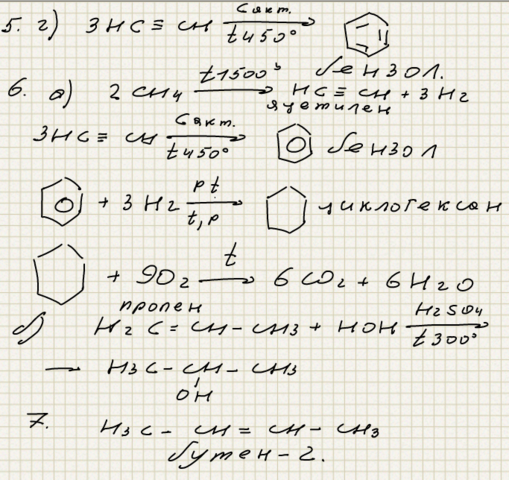 5. г) 3HC≡CH C акт. t450° →
бензол.
6. а) 2CH4 t1500° → HC≡CH + 3H2
ацетилен
3HC≡CH C акт. t450° → бензол
+ 3H2 pt t,p → циклогексан
+ 9O2 t → 6CO2 + 6H2O
пропен
б) H2C=CH-CH3 + HOH H2SO4 t300° →
→ H3C-CH-CH3
OH
7. H3C-CH=CH-CH3
бутен-2.